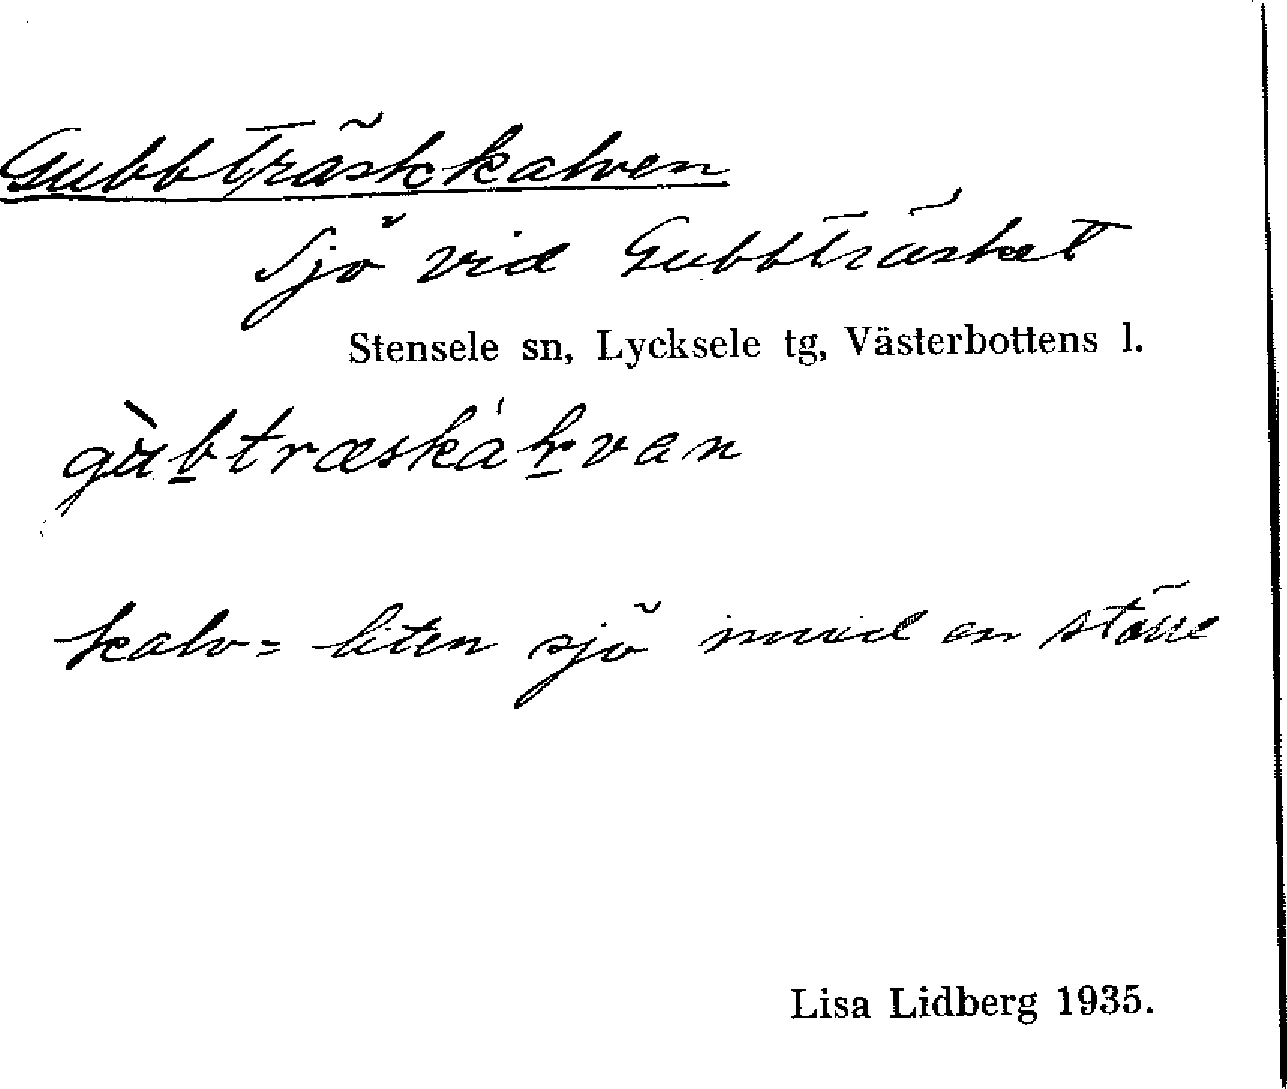 Gubbträskkalven
Sjö vid Gubbträsket
Stensele sn, Lycksele tg, Västerbottens l.
kalv = liten sjö invid en större
Lisa Lidberg 1935.